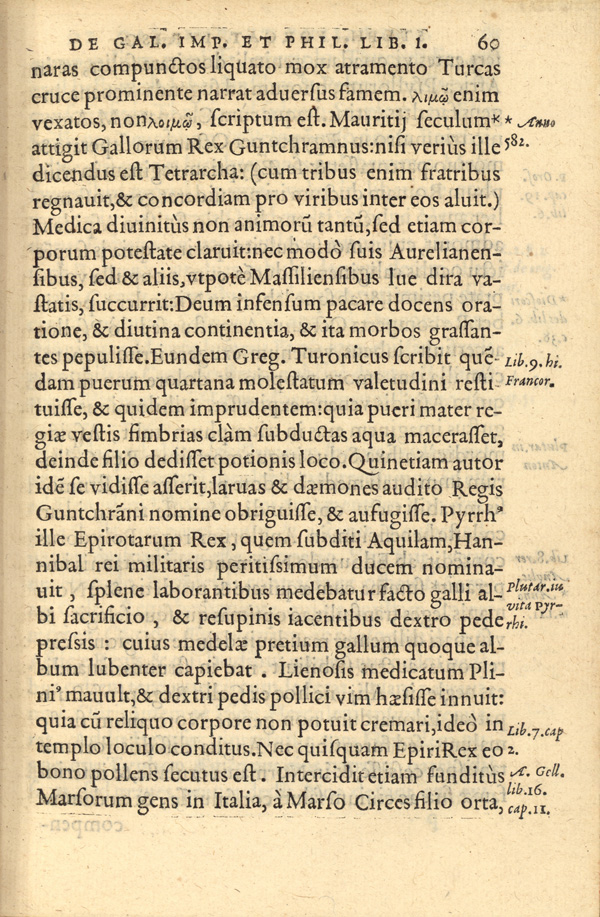 DE GAL. IMP. ET PHIL. LIB. I. 60
naras compunctos liquato mox atramento Turcas
cruce prominente narrat aduersus famem. λιμῷ enim
vexatos, non λοιμῷ, scriptum est. Mauritij seculum*
* Anno
attigit Gallorum Rex Guntchramnus: nisi veriùs ille
582.
dicendus est Tetrarcha: (cum tribus enim fratribus
regnauit, & concordiam pro viribus inter eos aluit.)
Medica diuinitùs non animorũ tantũ, sed etiam cor-
porum potestate claruit: nec modò suis Aurelianen-
sibus, sed & aliis, vtpotè Massiliensibus lue dira va-
statis, succurrit: Deum infensum pacare docens ora-
tione, & diutina continentia, & ita morbos grassan-
tes pepulisse. Eundem Greg. Turonicus scribit quē-
Lib. 9. hi.
dam puerum quartana molestatum valetudini resti
Francor.
tuisse, & quidem imprudentem: quia pueri mater re-
giæ vestis fimbrias clàm subductas aqua macerasset,
deinde filio dedisset potionis loco. Quinetiam autor
idē se vidisse asserit, laruas & dæmones audito Regis
Guntchrāni nomine obriguisse, & aufugisse. Pyrrhꝰ
ille Epirotarum Rex, quem subditi Aquilam, Han-
nibal rei militaris peritissimum ducem nomina-
uit, splene laborantibus medebatur facto galli al-
Plutar. in
bi sacrificio, & resupinis iacentibus dextro pede
vita Pyr-
rhi.
pressis: cuius medelæ pretium gallum quoque al-
bum lubenter capiebat. Lienosis medicatum Pli-
niꝰ mauult, & dextri pedis pollici vim hæsisse innuit:
quia cũ reliquo corpore non potuit cremari, ideò in
Lib. 7. cap
templo loculo conditus. Nec quisquam Epiri Rex eo
2.
bono pollens secutus est. Intercidit etiam funditùs
A. Gell.
lib. 16.
Marsorum gens in Italia, à Marso Circes filio orta,
cap. 11.